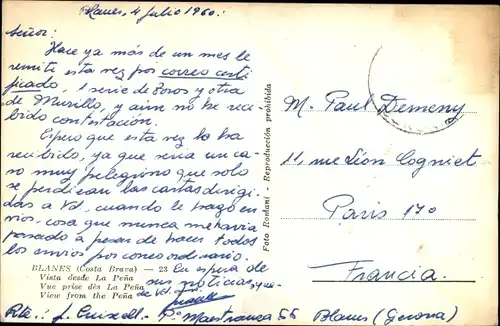 Blanes, 4 Julio 1960.
Señor:
Hace ya más de un mes le
remití esta vez por correo certi-
ficado, 1 serie de Toros y otra
de Murillo, y aún no he reci-
bido contestación.
Espero que esta vez lo ha
recibido, ya que sería un ca-
so muy pelegrino que solo
se perdieran las cartas dirigi-
das a Vd. cuando le hago en-
vios, cosa que nunca me havia
pasado a pesar de hacer todos
los envios por correo ordinario.
BLANES (Costa Brava) — 23 En espera de
Vista desde La Peña sus noticias, que-
Vue prise dès La Peña de Vd.
View from the Peña
Rte: J. Pº Maestranza 66 Blanes (Gerona)
Foto Romani - Reproducción prohibida
M. Paul Demeny
11, rue Léon Cogniet
Paris 17º
Francia.